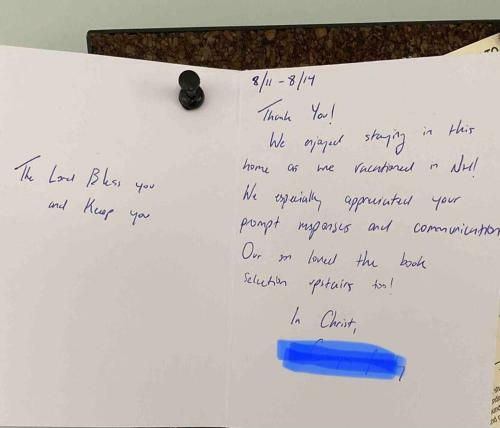 The Lord Bless you
and Keep you
8/11 - 8/14
Thank You!
We enjoyed staying in this
home as we vacationed in NH!
We especially appreciated your
prompt responses and communication
Our son loved the book
selection upstairs too!
In Christ,